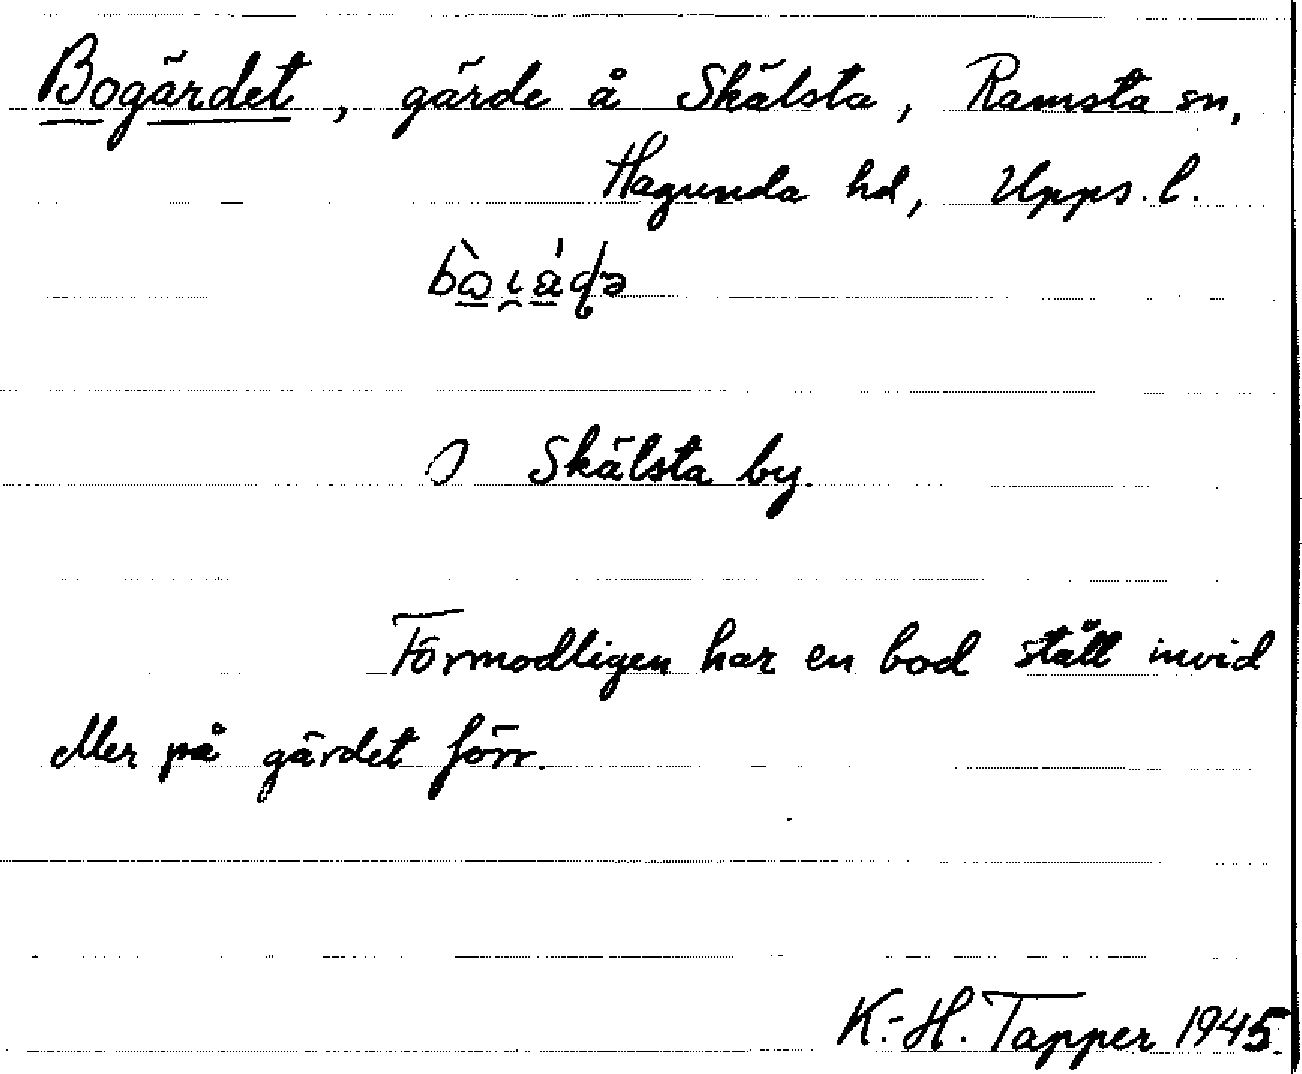 Bogärdet, gärde å Skälsta, Ramsta sn,
Hagunda hd, Upps. l.
Skälsta by.
Förmodligen har en bod stått invid
eller på gärdet förr.
K.-H. Tapper 1945.